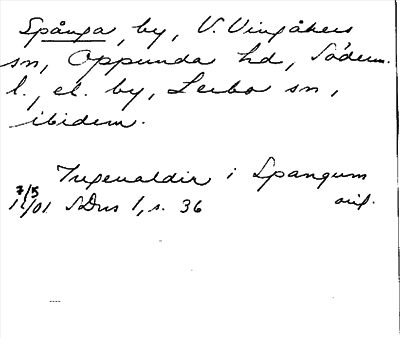 Spånga, by, V. Vingåkers
sn, Oppunda hd, Söderm.
l., el. by, Lerbo sn,
ibidem.
Ingeualdir i Spangum
7/5 1401 SDns 1, s. 36 orig.